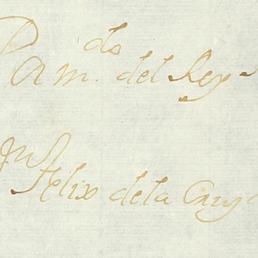 P.r m.do del Rey
Jn Felix dela Cruz